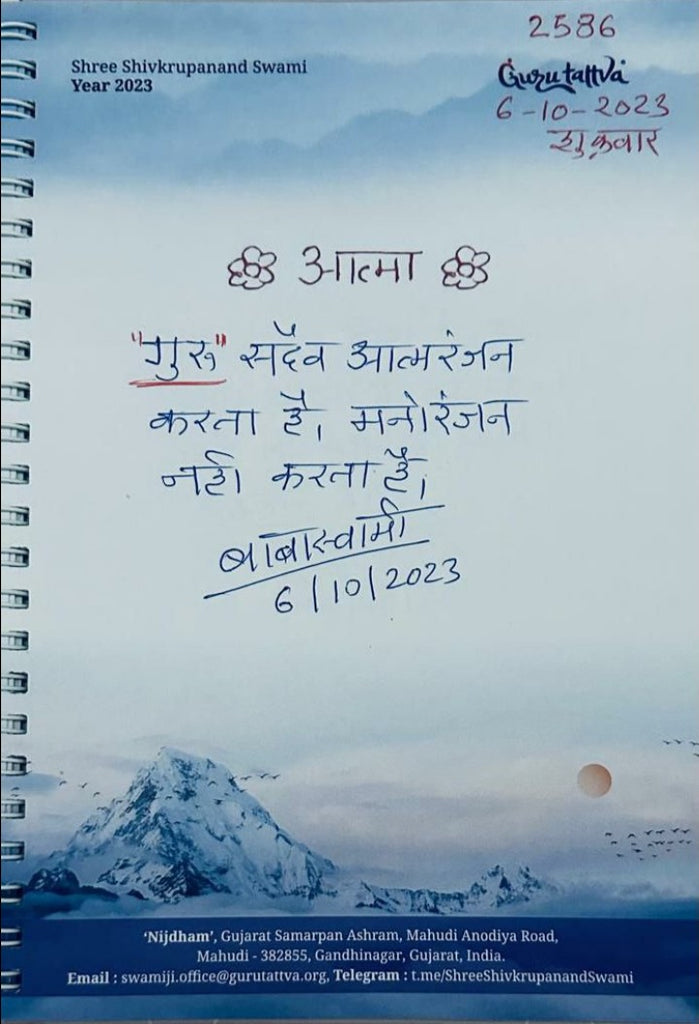 2586
Shree Shivkrupanand Swami
Year 2023
Gurutattva
6-10-2023
शुक्रवार
आत्मा
"गुरु" सदैव आत्मरंजन
करता है। मनोरंजन
नहीं करता है।
बाबास्वामी
6/10/2023
'Nijdham', Gujarat Samarpan Ashram, Mahudi Anodiya Road,
Mahudi - 382855, Gandhinagar, Gujarat, India.
Email : swamiji.office@gurutattva.org, Telegram : t.me/ShreeShivkrupanandSwami